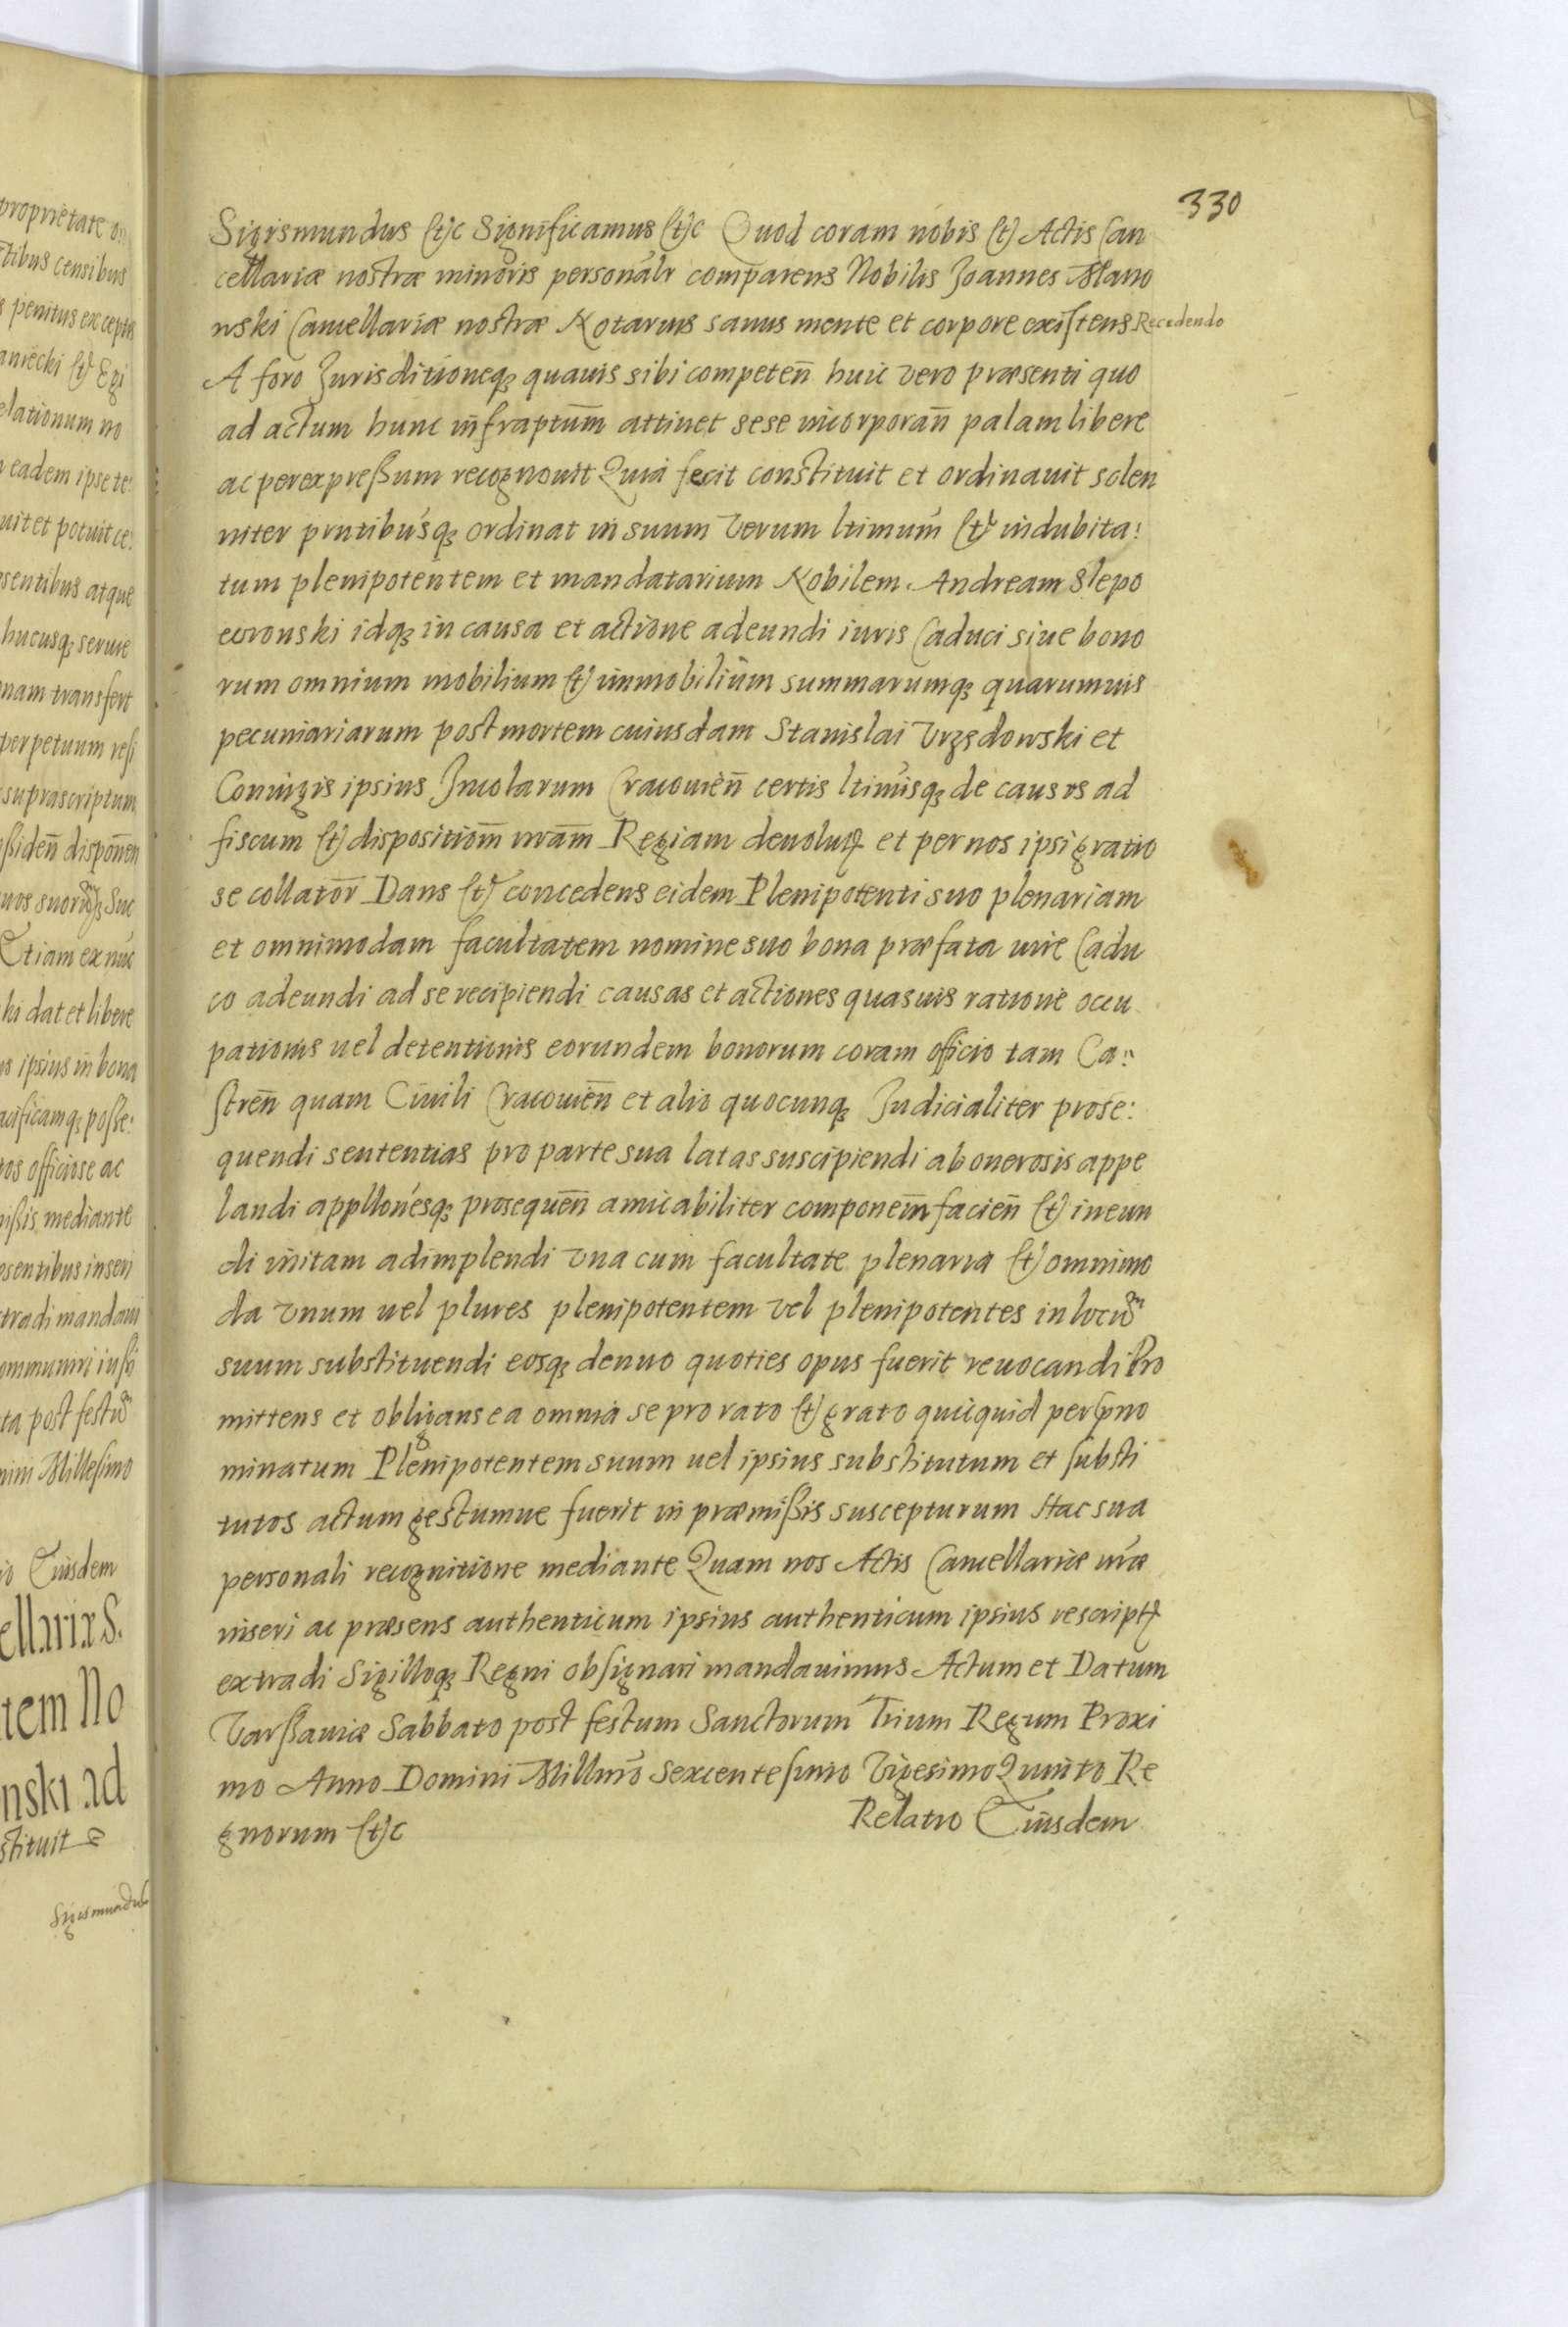 330
Sigismundus etc Significamus etc Quod coram nobis et Actis Can
cellariæ nostræ minoris personalr comparens Nobilis Joannes Mano
wski Cancellariæ nostræ Notarius sanus mente et corpore existens Recedendo
A foro Jurisditioneq3 quauis sibi competen̄ huic vero præsenti quo
ad actum hunc infraptum̄ attinet sese incorporan̄ palam libere
ac per expreßum recognouit Quia fecit constituit et ordinauit solen
niter pr̄ntibusq3 ordinat in suum verum ltimum et indubita:
tum plenipotentem et mandatarium Nobilem Andream Slepo
wronski idq3 in causa et actione adeundi iuris Caduci siue bono
rum omnium mobilium et immobilium summarumq3 quarumuis
pecuniariarum post mortem cuiusdam Stanislai Vrzędowski et
Coniugis ipsius Incolarum Cracouien̄ certis ltimisq3 de causis ad
fiscum et dispositiom̄ nram̄ Regiam deuolut et per nos ipsi gratio
se collator̄ Dans et concedens eidem Plenipotenti suo plenariam
et omnimodam facultatem nomine suo bona præfata iure Cadu
co adeundi ad se recipiendi causas et actiones quasuis ratione occu
pationis uel detentionis eorundem bonorum coram officio tam Ca:
stren̄ quam Ciuili Cracouien̄ et alio quocunq3 Judicialiter prose:
quendi sententias pro parte sua latas suscipiendi ab onerosis appe
landi appllonesq3 prosequen̄ amicabiliter componen̄ facien̄ et ineun
di initam adimplendi vna cum facultate plenaria et omnimo
da vnum uel plures plenipotentem vel plenipotentes in locum
suum substituendi eosq3 denuo quoties opus fuerit reuocandi Pro
mittens et obligans ea omnia se pro rato et grato quicquid per sprno
minatum Plenipotentem suum uel ipsius substitutum et substi
tutos actum gestumue fuerit in præmißis suscepturum Hac sua
personali recognitione mediante Quam nos Actis Cancellariæ nræ
inseri ac præsens authenticum ipsius authenticum ipsius rescript
extradi Sigilloq3 Regni obsignari mandauimus Actum et Datum
Varßauiæ Sabbato post festum Sanctorum Trium Regum Proxi
mo Anno Domini Millmo Sexcentesimo Vigesimo Quinto Re
gnorum etc Relatio Eiusdem